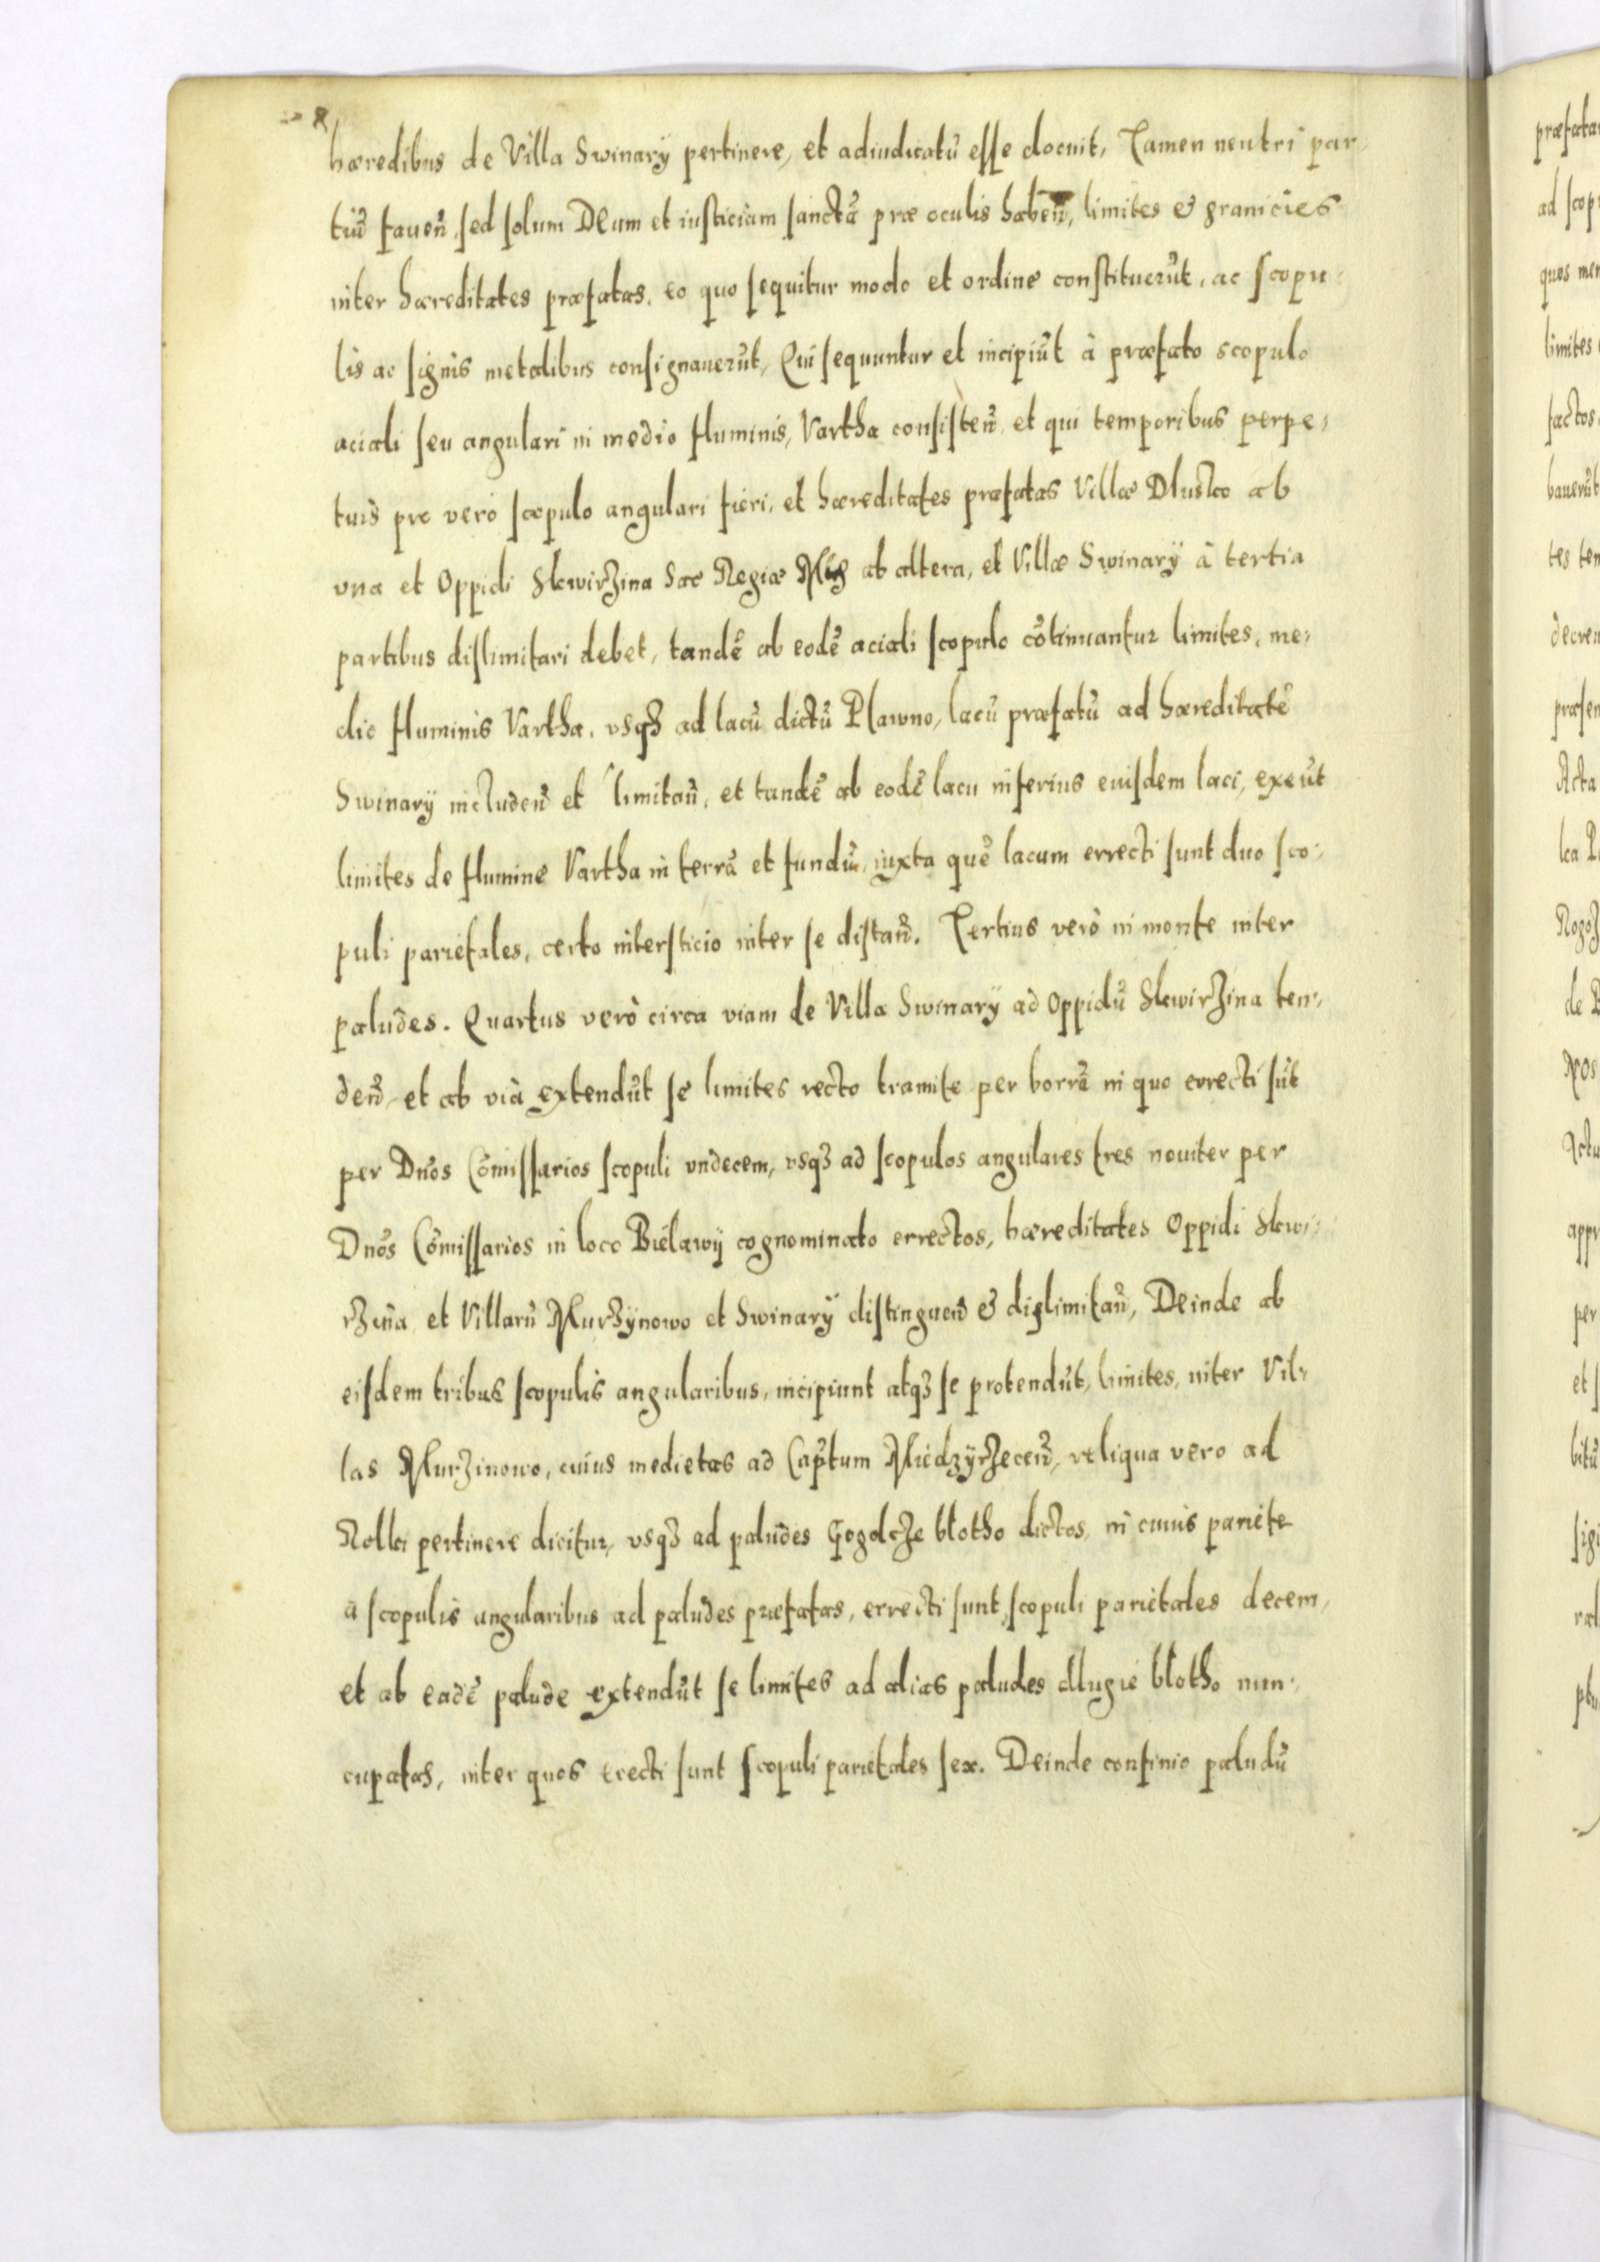 hæredibus de Villa Swinarÿ pertinere, et adiudicatũ esse docuit, Tamen neutri par-
tiũ faueñ, sed solum DEum et iusticiam sanctã præ oculis habeñ, limites & granicies
inter hæreditates præfatas, eo quo sequitur modo et ordine constituerũt, ac scopu-
lis ac signis metalibus consignauerũt, Qui sequuntur et incipiũt à præfato scopulo
aciali seu angulari in medio fluminis, Vartha consisteñ, et qui temporibus perpe-
tuis pro verò scopulo angulari fieri, et hæreditates præfatas Villæ Dlusko ab
vna et Oppidi Skwirzina Sac Regiæ ab altera, et Villæ Swinarÿ à tertia
partibus dislimitari debet, tandẽ ab eodẽ aciali scopulo cõtinuantur limites, me-
dio fluminis Vartha, vsq3 ad lacũ dictũ Plawno, lacũ præfatũ ad hæreditatẽ
Swinarÿ includeñ et limitañ, et tandẽ ab eodẽ lacu inferius euisdem laci, exeũt
limites de flumine Vartha in terrã et fundũ, iuxta quẽ lacum errecti sunt duo sco-
puli parietales, certo intersticio inter se distañ. Tertius verò in monte inter
paludes. Quartus verò circa viam de Villa Swinarÿ ad Oppidũ Skwirzina ten-
deñ, et ab via extendũt se limites recto tramite per borrã in quo errecti sũt
per Dños Cõmissarios scopuli vndecem, vsq3 ad scopulos angulares tres nouiter per
Dños Cõmissarios in loco Bielawÿ cognominato errectos, hæreditates Oppidi Skwi-
rzina et Villarũ Murzÿnowo et Swinarÿ distingueñ & dislimitañ, Deinde ab
eisdem tribus scopulis angularibus, incipiunt atq3 se protendũt, limites, inter Vil-
las Murzinowo, cuius medietas ad Cap̃tum Miedzÿrzeceñ, reliqua vero ad
Rollei pertinere dicitur, vsq3 ad paludes Gogolcze blotho dictos, in cuius pariete
à scopulis angularibus ad paludes præfatas, errecti sunt scopuli parietales decem,
et ab eadẽ palude extendũt se limites ad alias paludes dlugie blotho nun-
cupatas, inter quos erecti sunt scopuli parietales sex. Deinde confinio paludũ